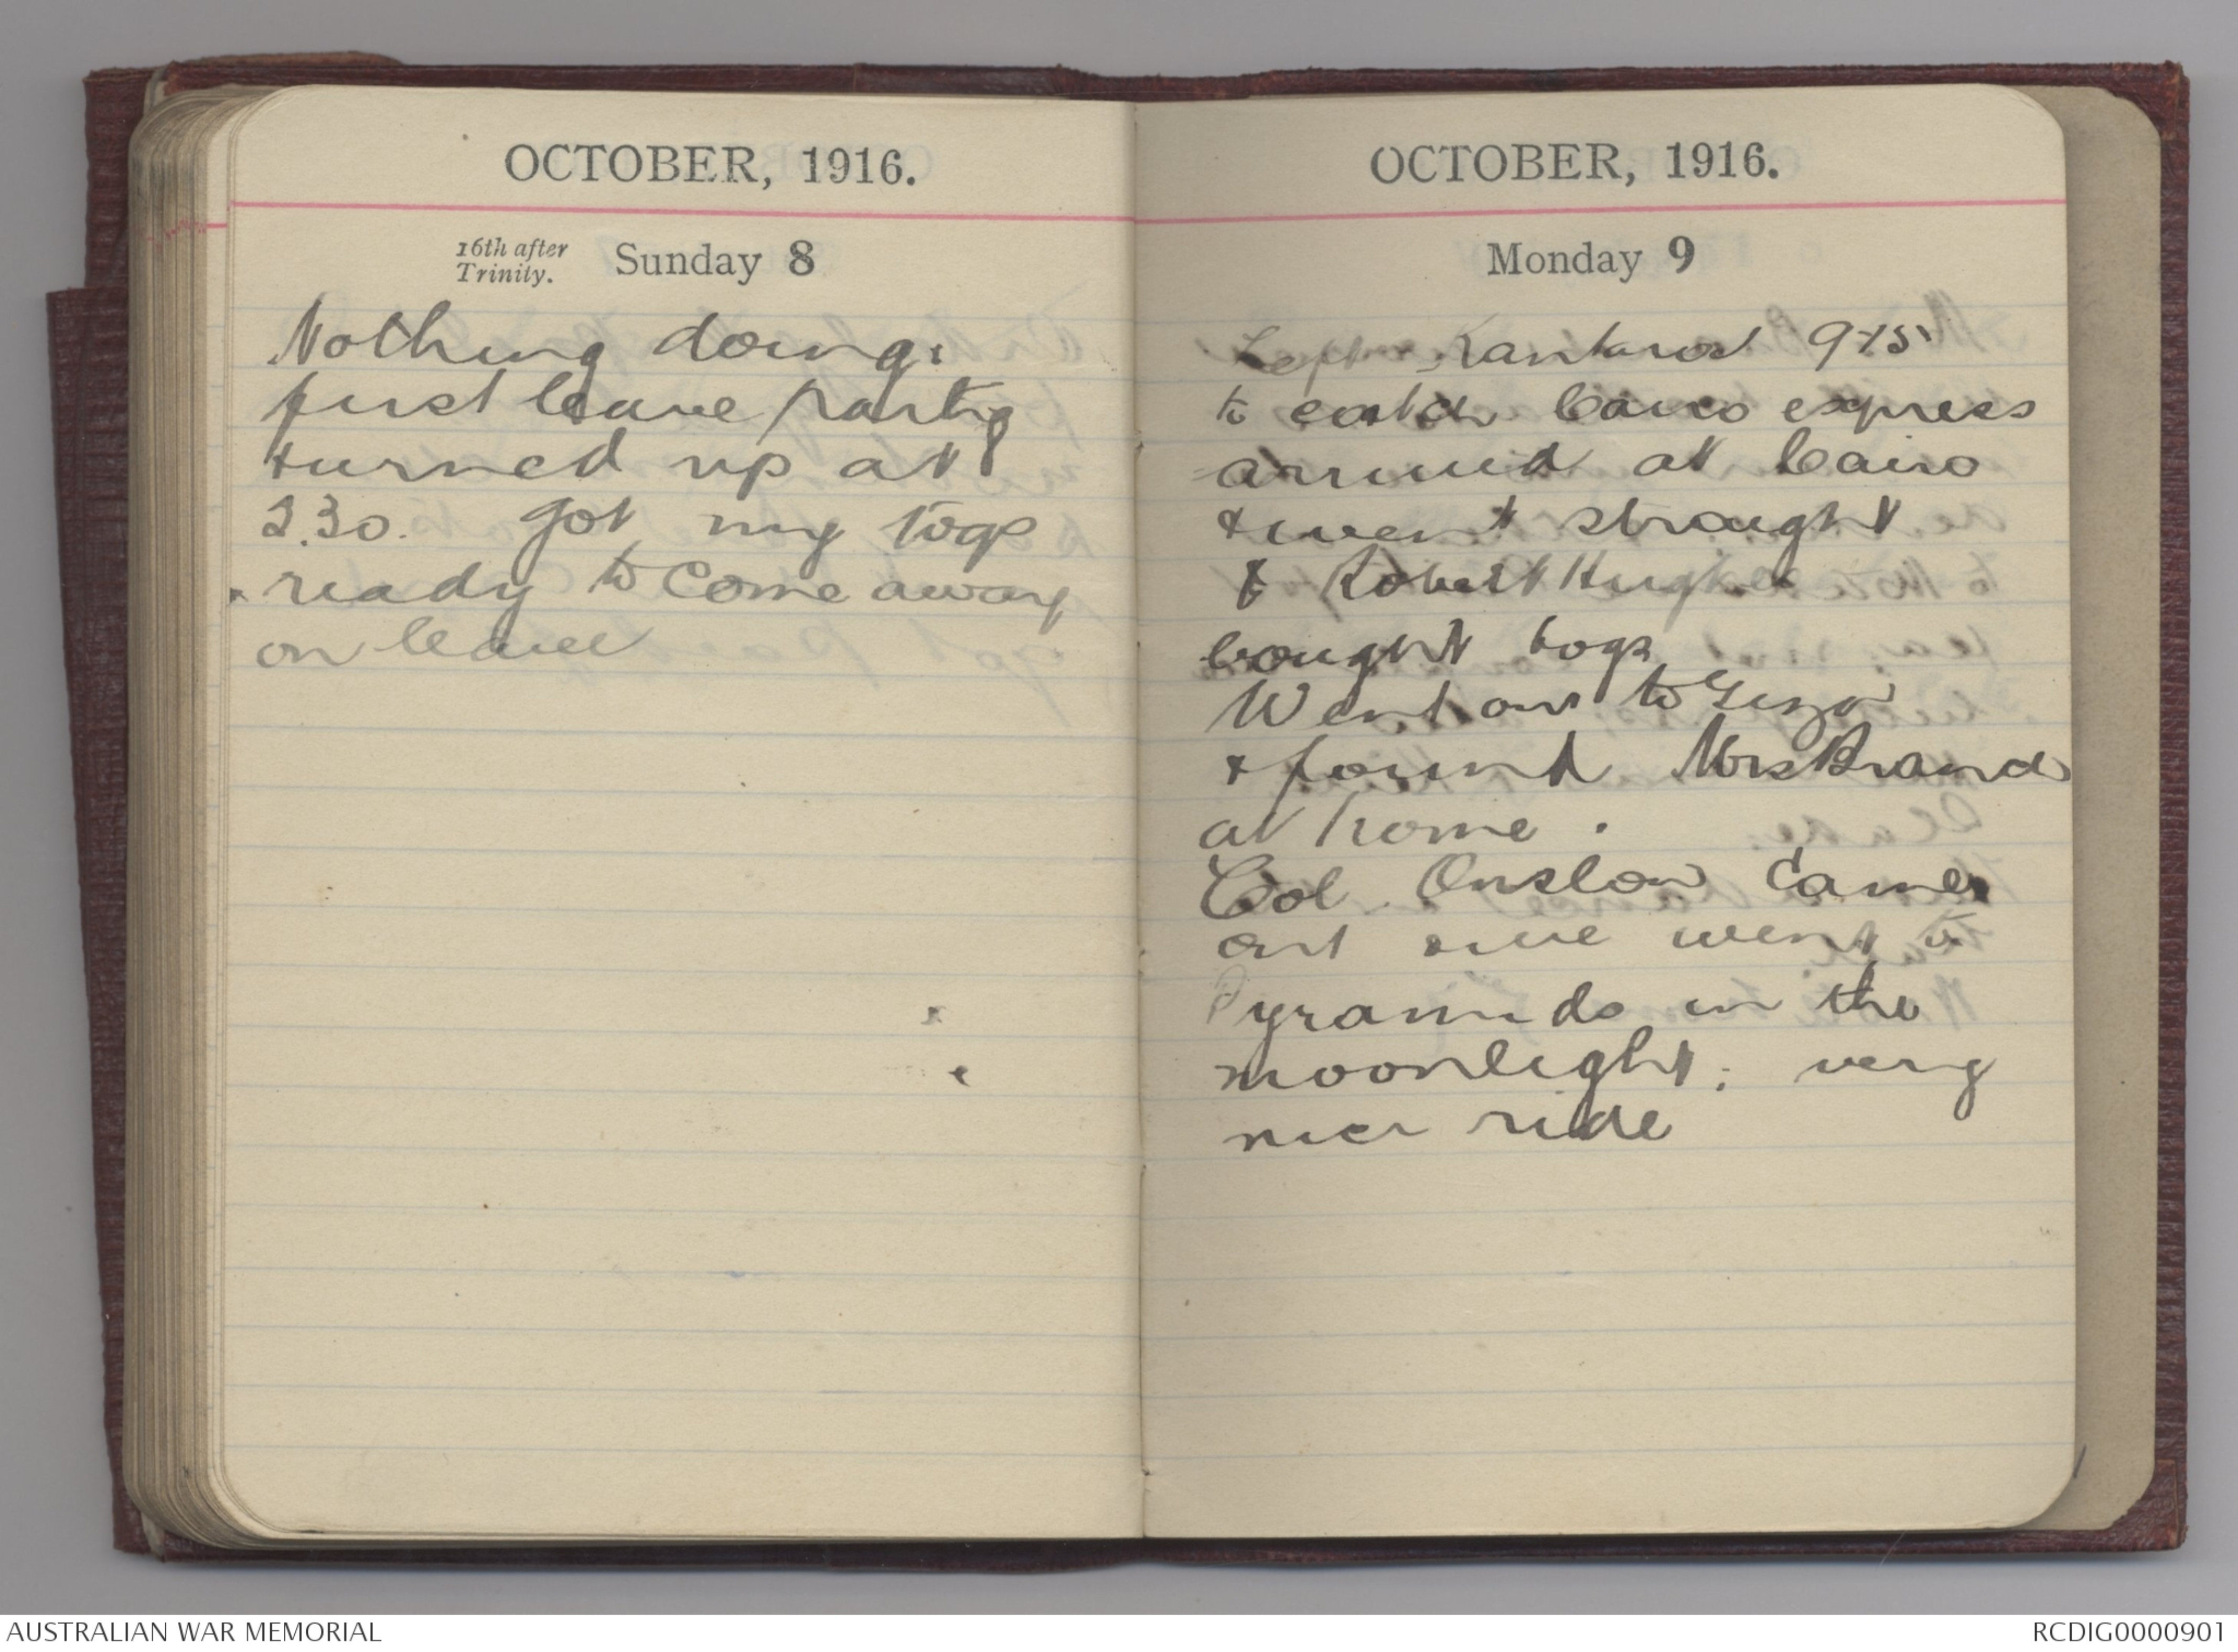 OCTOBER, 1916.
16th after
Trinity.
Sunday 8
Nothing doing.
first leave party
turned up at
2.30. Got my togs
ready to come away
on leave
OCTOBER, 1916.
Monday 9
Left Kantara 9
to catch Cairo express
arrived at Cairo
& went straight
to Robert Hughes
bought togs
Went out to Giza
& found Mrs Brand
at home.
Col Onslow came
out & we went to
Pyramids in the
moonlight; very
nice ride
AUSTRALIAN WAR MEMORIAL
RCDIG0000901